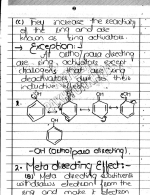 (c) They increase the reactivity
of the ring and are
known as ring activators.
→ Exception:-
All ortho/para directing
are ring activators except
halogens that are ring
deactivators due to their
inductive effect.
-OH (ortho/para directing).
2- Meta directing effect:-
(a) Meta directing substituents
withdraws electrons from the
ring and make it electron